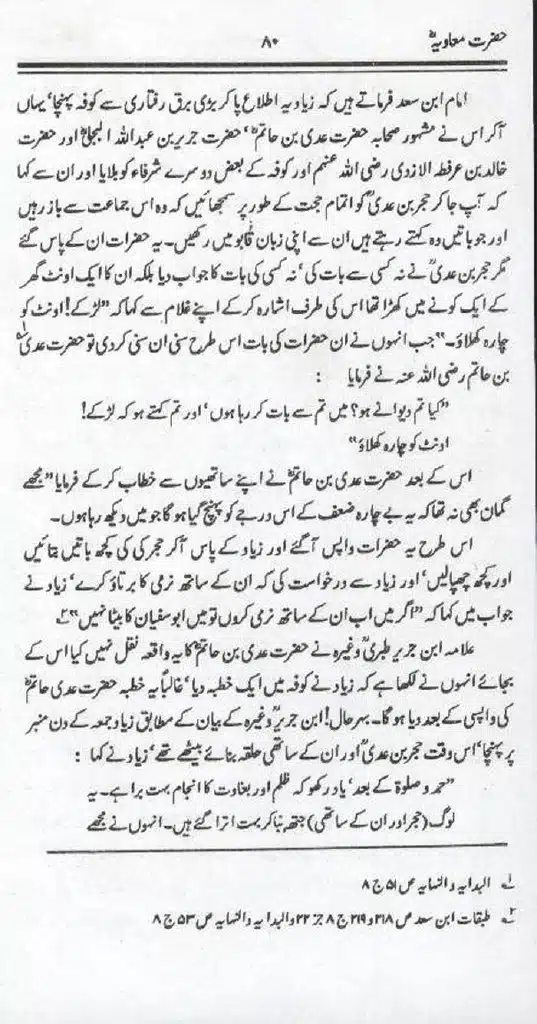 حضرت معاویہؓ ۸۰
امام ابن سعد فرماتے ہیں کہ زیاد یہ اطلاع پا کر بڑی برق رفتاری سے کوفہ پہنچا، یہاں
آکر اس نے مشہور صحابہ حضرت عدی بن حاتمؓ، حضرت جریر بن عبداللہ البجلیؓ اور حضرت
خالد بن عرفطہ الازدی رضی اللہ عنہم اور کوفہ کے بعض دوسرے شرفاء کو بلایا اور ان سے کہا
کہ آپ جا کر حجر بن عدیؓ کو اتمام حجت کے طور پر سمجھائیں کہ وہ اس جماعت سے باز رہیں
اور جو باتیں وہ کہتے رہتے ہیں ان سے اپنی زبان قابو میں رکھیں۔ یہ حضرات ان کے پاس گئے
مگر حجر بن عدیؓ نے نہ کسی سے بات کی، نہ کسی کی بات کا جواب دیا بلکہ ان کا ایک اونٹ گھر
کے ایک کونے میں کھڑا تھا اس کی طرف اشارہ کر کے اپنے غلام سے کہا کہ ”لڑکے! اونٹ کو
چارہ کھلاؤ۔“ جب انہوں نے ان حضرات کی بات اس طرح سنی ان سنی کر دی تو حضرت عدیؓ
بن حاتم رضی اللہ عنہ نے فرمایا :
”کیا تم دیوانے ہو؟ میں تم سے بات کر رہا ہوں، اور تم کہتے ہو کہ لڑکے!
اونٹ کو چارہ کھلاؤ“
اس کے بعد حضرت عدی بن حاتمؓ نے اپنے ساتھیوں سے خطاب کر کے فرمایا ”مجھے
گمان بھی نہ تھا کہ یہ بے چارہ ضعف کے اس درجے کو پہنچ گیا ہو گا جو میں دیکھ رہا ہوں۔
اس طرح یہ حضرات واپس آگئے اور زیاد کے پاس آکر حجر کی کچھ باتیں بتائیں
اور کچھ چھپالیں، اور زیاد سے درخواست کی کہ ان کے ساتھ نرمی کا برتاؤ کرے، زیاد نے
جواب میں کہا کہ ”اگر میں اب ان کے ساتھ نرمی کروں تو میں ابو سفیان کا بیٹا نہیں“ ۲؎
علامہ ابن جریر طبریؒ وغیرہ نے حضرت عدی بن حاتمؓ کا یہ واقعہ نقل نہیں کیا اس کے
بجائے انہوں نے لکھا ہے کہ زیاد نے کوفہ میں ایک خطبہ دیا، غالباً یہ خطبہ حضرت عدی حاتمؓ
کی واپسی کے بعد دیا ہو گا۔ بہر حال! ابن جریرؒ وغیرہ کے بیان کے مطابق زیاد جمعہ کے دن منبر
پر پہنچا، اس وقت حجر بن عدیؓ اور ان کے ساتھی حلقہ بنائے بیٹھے تھے، زیاد نے کہا :
”حمد و صلوٰۃ کے بعد، یاد رکھو کہ ظلم اور بغاوت کا انجام بہت برا ہے۔ یہ
لوگ (حجر اور ان کے ساتھی) جتھہ بنا کر بہت اترا گئے ہیں۔ انہوں نے مجھے
۱؎ البدایہ والنہایہ ص ۵۱ ج ۸
۲؎ طبقات ابن سعد ص ۲۱۸ و ۲۱۹ ج ۸ جز ۲۲ والبدایہ والنہایہ ص ۵۳ ج ۸